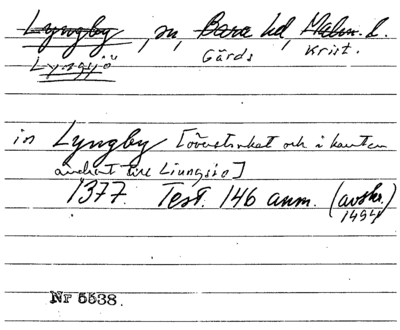 Lyngby, sn, Bara hd, Malm. l.
Lyngsjö Gärds Krist.
in Lyngby [överstruket och i kanten
ändrat till Liungsio]
1377. Test. 146 anm. (avskr.
1494)
Nr 5538.